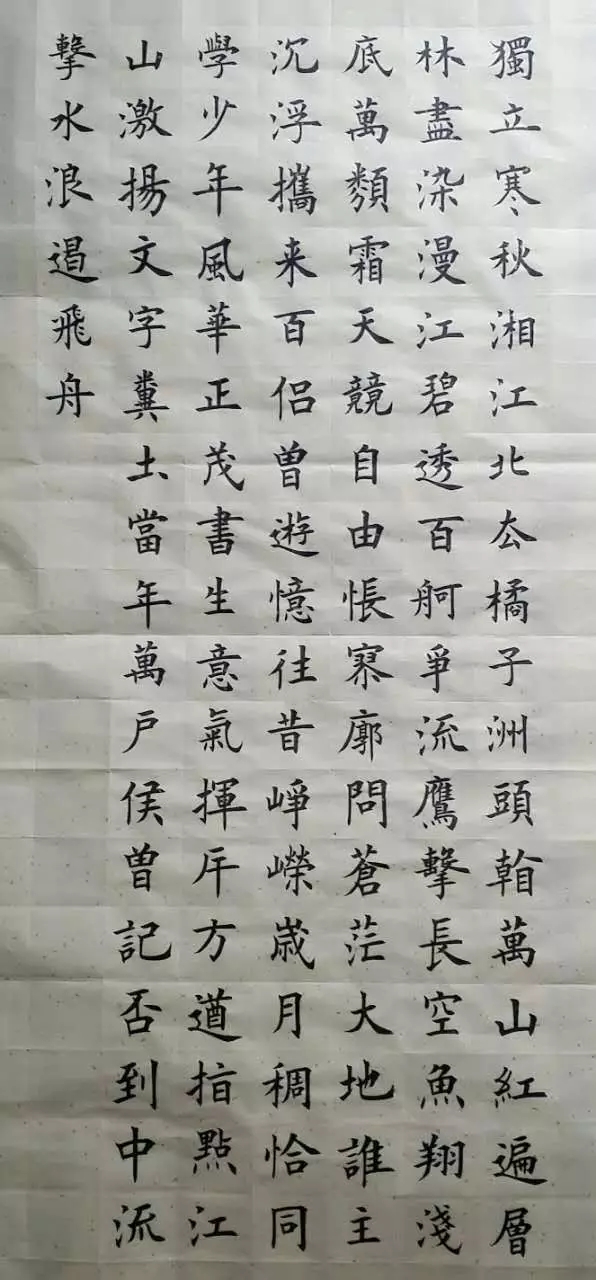 獨立寒秋湘江北厺橘子洲頭看萬山紅遍層
林盡染漫江碧透百舸爭流鷹擊長空魚翔淺
底萬類霜天競自由悵寥廓問蒼茫大地誰主
沉浮攜来百侶曾遊憶往昔崢嶸歲月稠恰同
學少年風華正茂書生意氣揮斥方遒指點江
山激揚文字糞土當年萬戶侯曾記否到中流
擊水浪遏飛舟